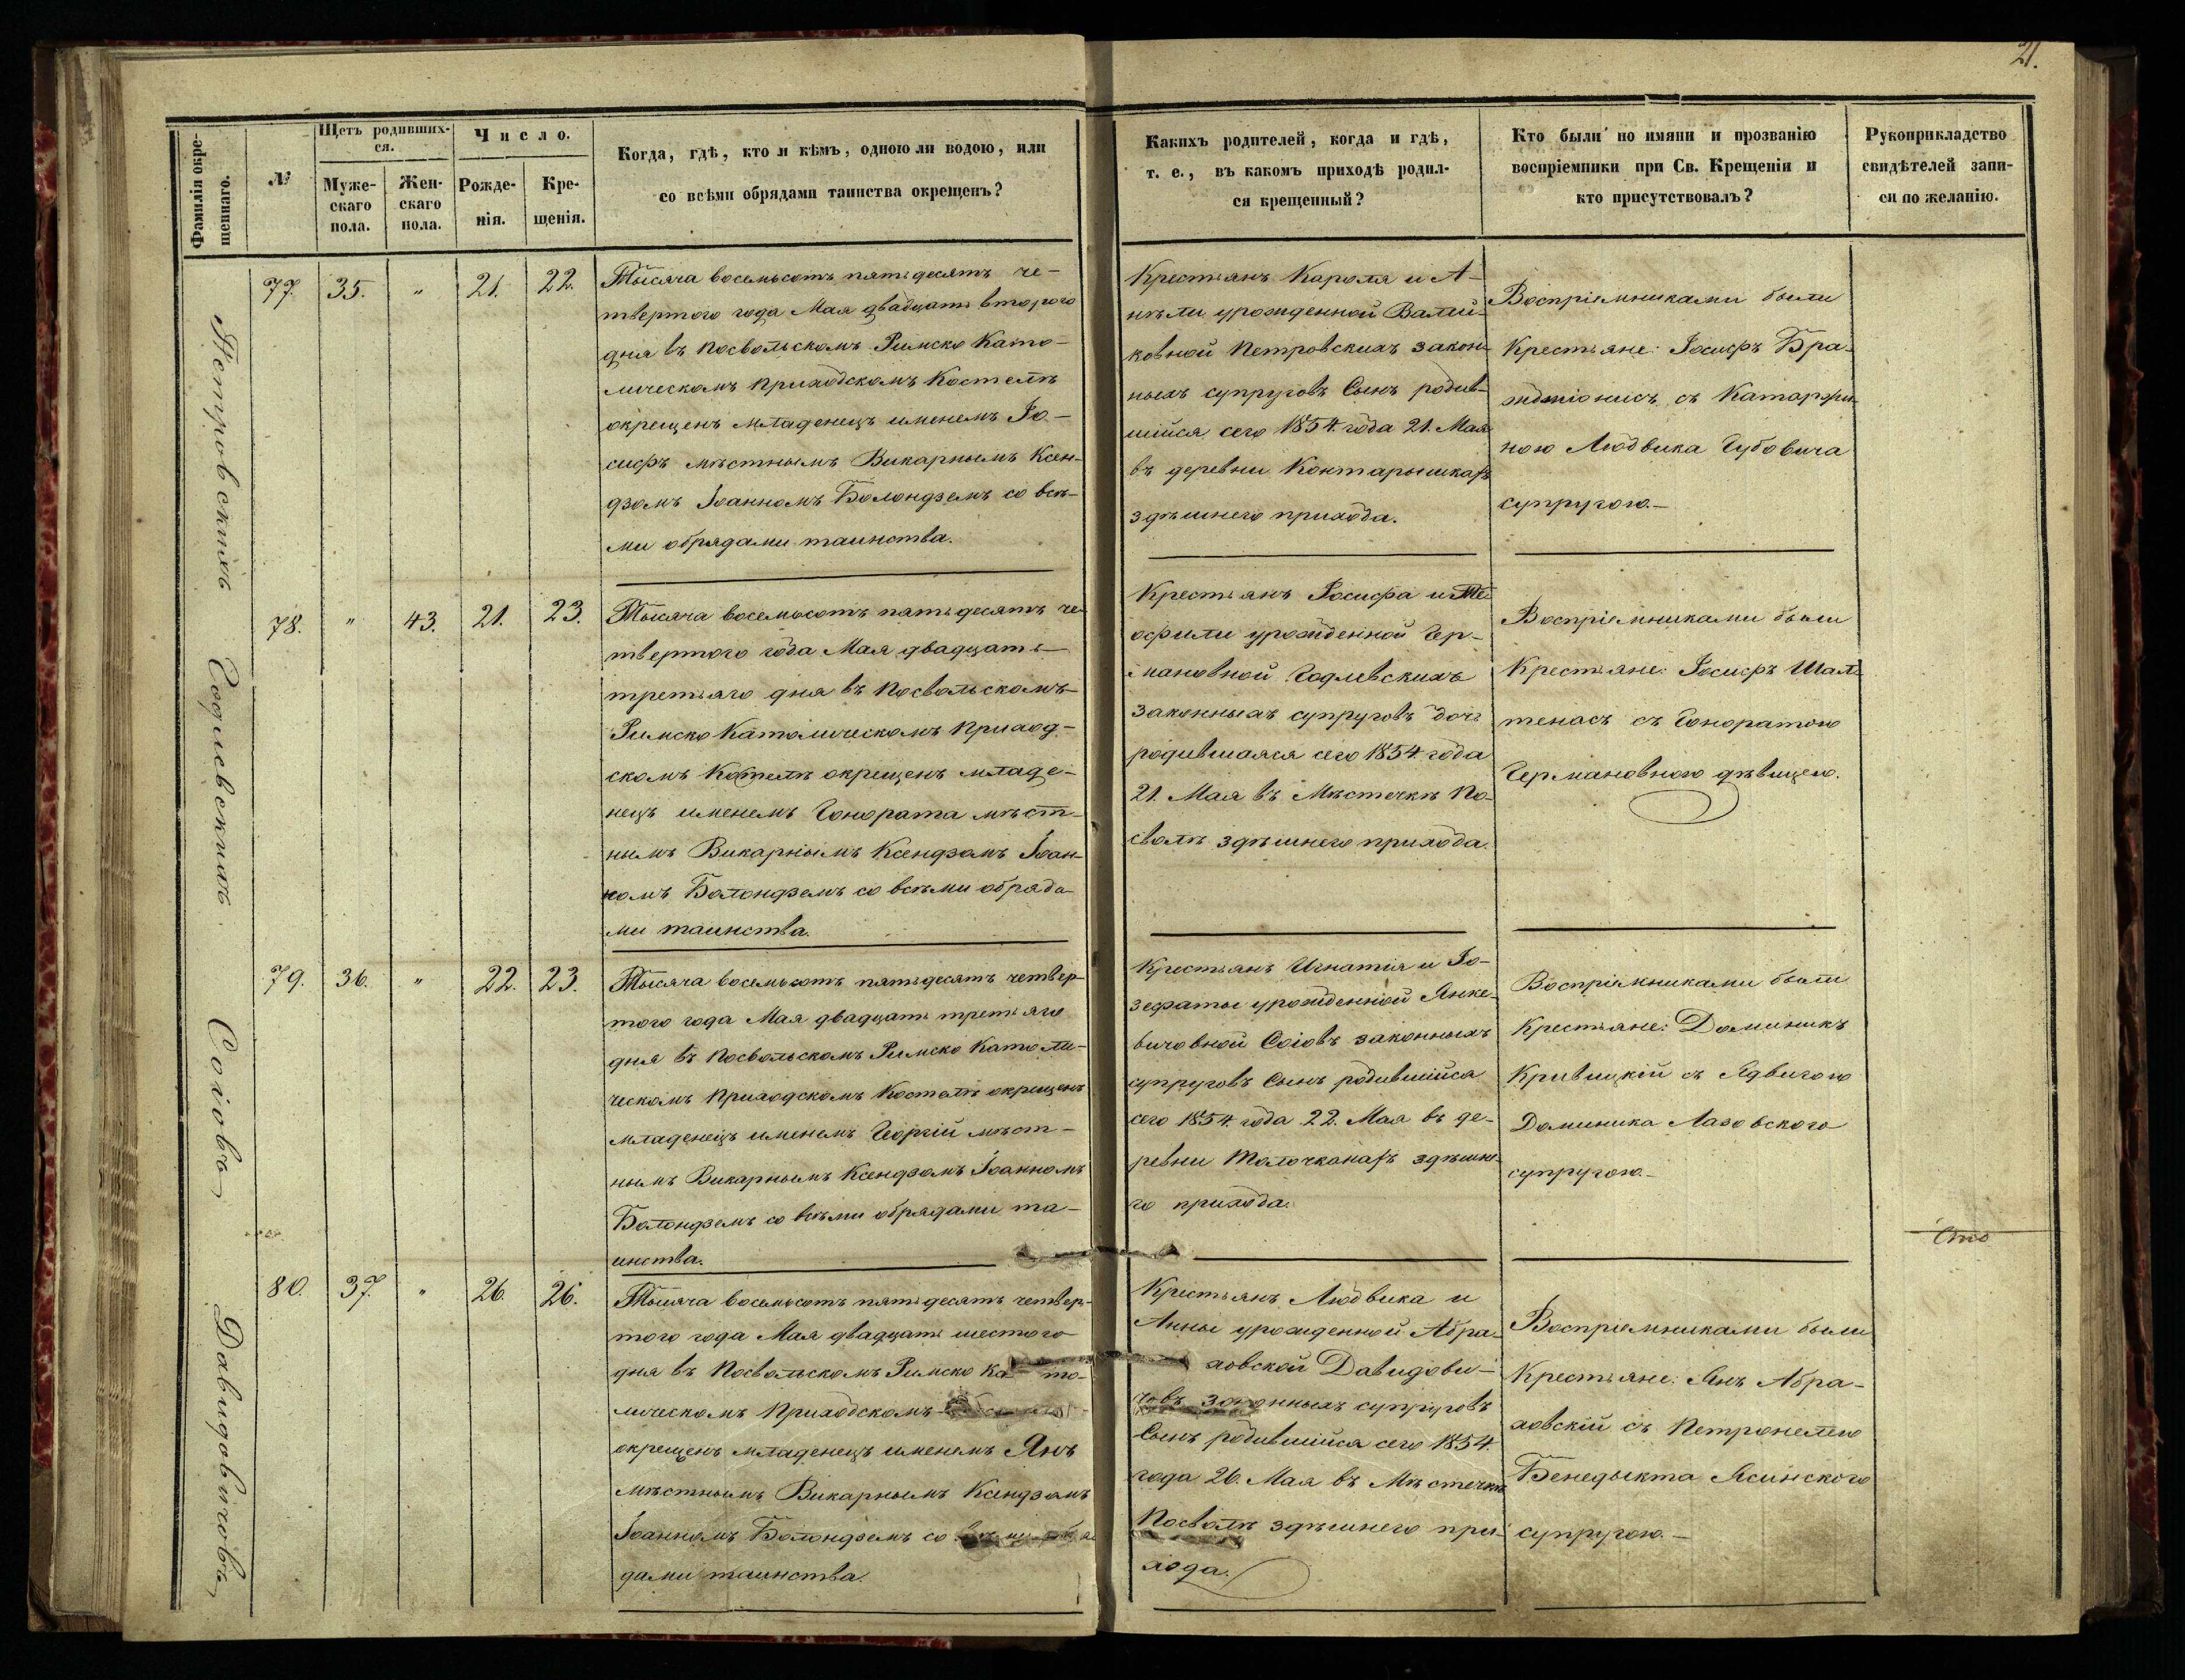 21.
Фамилія окре-
щеннаго.
№
Щетъ родивших-
ся.
Муже-
скаго
пола.
Жен-
скаго
пола.
Число.
Рожде-
нія.
Кре-
щенія.
Когда, гдѣ, кто и кѣмъ, одною ли водою, или
со всѣми обрядами таинства окрещенъ?
Какихъ родителей, когда и гдѣ,
т. е., въ какомъ приходѣ родил-
ся крещенный?
Кто были по имяни и прозванію
воспріемники при Св. Крещеніи и
кто присутствовалъ?
Рукоприкладство
свидѣтелей запи-
си по желанію.
Петровскихъ
77. 35. " 21. 22.
Тысяча восемьсотъ пятьдесятъ че-
твертого года Мая двадцать второго
дня въ Посвольскомъ Римско Като-
лическомъ Приходскомъ Костелѣ
окрещенъ младенецъ именемъ Іо-
сифъ мѣстнымъ Викарнымъ Ксен-
дзомъ Іоанномъ Болондземъ со всѣ-
ми обрядами таинства.
Крестьянъ Кароля и А-
нѣли урожденной Валюй-
ковной Петровскихъ закон-
ныхъ супруговъ Сынъ родив-
шійся сего 1854 года 21. Мая
въ деревни Контарышкахъ
здѣшнего прихода.
Воспріемниками были
Крестьяне: Іосифъ Бра-
съ Катаржи-
ною Людвика Губовича
супругою.-
Годлевскихъ
78. " 43. 21. 23.
Тысяча восемьсотъ пятьдесятъ че-
твертого года Мая двадцать
третьяго дня въ Посвольскомъ
Римско Католическомъ Приход-
скомъ Костелѣ окрещенъ младе-
нецъ именемъ Гонората мѣст-
нымъ Викарнымъ Ксендзомъ Іоан-
номъ Болондземъ со всѣми обряда-
ми таинства.
Крестьянъ Іосифа и Те-
офили урожденной Гер-
мановной Годлевскихъ
законныхъ супруговъ дочь
родившаяся сего 1854 года
21. Мая въ Мѣстечкѣ По-
сволѣ здѣшнего прихода.
Воспріемниками были
Крестьяне: Іосифъ Шал-
тенасъ съ Гоноратою
Германовною дѣвицею.
Соіовъ
79. 36. " 22. 23.
Тысяча восемьсотъ пятьдесятъ четвер-
того года Мая двадцать третьяго
дня въ Посвольскомъ Римско Католи-
ческомъ Приходскомъ Костелѣ окрещенъ
младенецъ именемъ Георгій мѣст-
нымъ Викарнымъ Ксендзомъ Іоанномъ
Болондземъ со всѣми обрядами та-
инства.
Крестьянъ Игнатія и Іо-
зефаты урожденной Янке-
вичовной Соіовъ законныхъ
супруговъ Сынъ родившійся
сего 1854 года 22. Мая въ де-
ревни Толочканахъ здѣшне-
го прихода.
Воспріемниками были
Крестьяне: Доминикъ
Кривицкій съ Ядвигою
Доминика Лазовского
супругою.-
Давидовичовъ
80. 37. " 26. 26.
Тысяча восемьсотъ пятьдесятъ четвер-
того года Мая двадцать шестого
дня въ Посвольскомъ Римско Като-
лическомъ Приходскомъ
окрещенъ младенецъ именемъ Янъ
мѣстнымъ Викарнымъ Ксендзомъ
Іоанномъ Болондземъ со всѣми обря
дами таинства.
Крестьянъ Людвика и
Анны урожденной Абра-
ховской Давидови-
човъ законныхъ супруговъ
Сынъ родившійся сего 1854.
года 26. Мая въ Мѣстечкѣ
Посволѣ здѣшнего при-
хода.
Воспріемниками были
Крестьяне: Янъ Абра-
ховскій съ Петронелею
Бенедыкта Ясинского
супругою.-